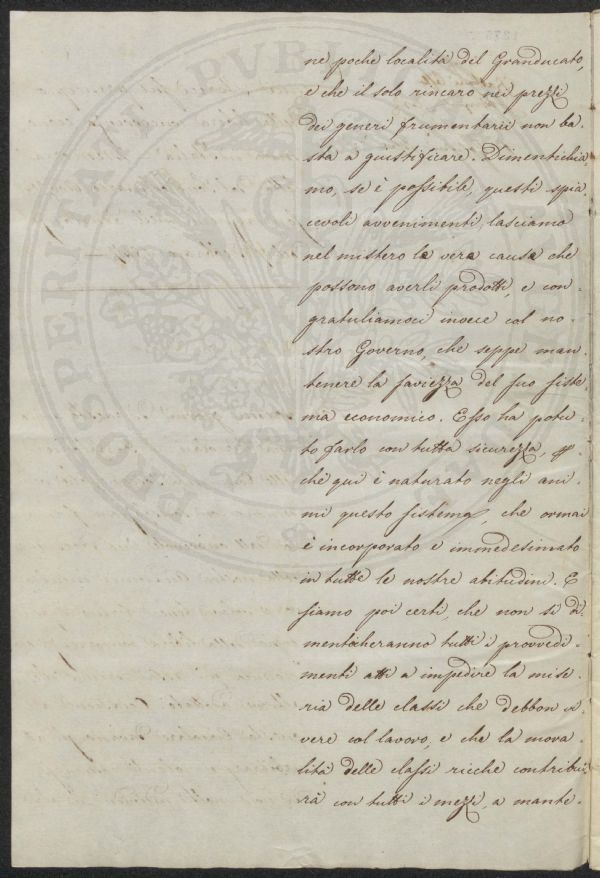 ne poche località del Granducato,
e che il solo rincaro nei prezzi
dei generi frumentarii non ba-
sta a giustificare. Dimentichia
mo, se è possibile, questi spia
cevoli avvenimenti, lasciamo
nel mistero la vera causa che
possono averli prodotti, e con-
gratuliamoci invece col no-
stro Governo, che seppe man
tenere la saviezza del suo siste
ma economico. Esso ha potu-
to farlo con tutta sicurezza,
chè qui è naturato negli ani-
mi questo sistema, che ormai
è incorporato e immedesimato
in tutte le nostre abitudini. E
siamo poi certi, che non si di-
menticheranno tutti i provvedi-
menti atti a impedire la mise-
ria delle classi che debbon vi
vere col lavoro, e che la mora-
lità delle classi ricche contribui
rà con tutti i mezzi, a mante-
PROSPERITATI PVBL